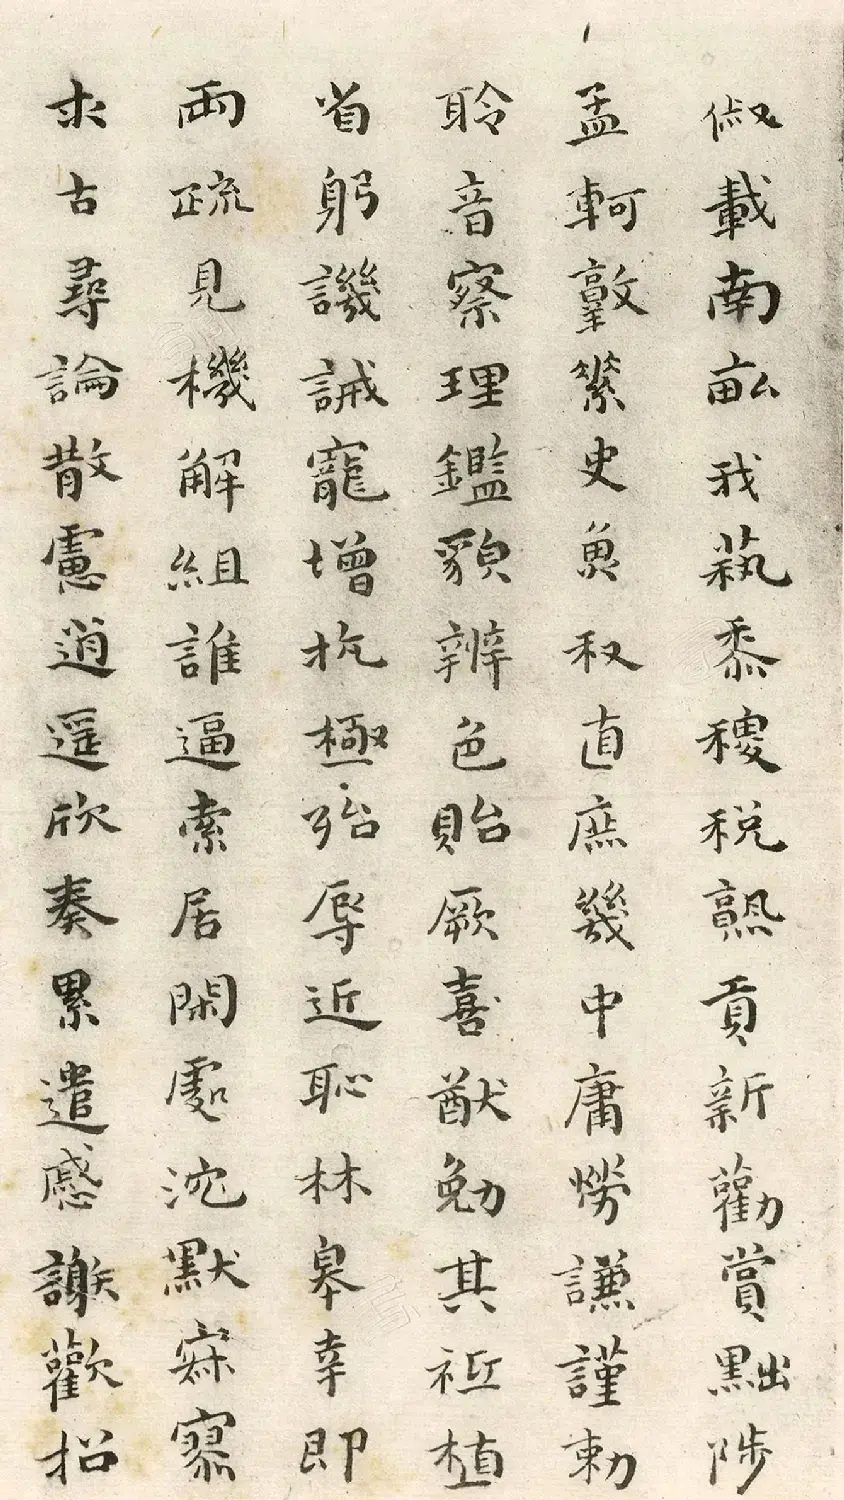 俶載南畝我蓺黍稷稅熟貢新勸賞黜陟
孟軻敦素史魚秉直庶幾中庸勞謙謹勑
聆音察理鑑貌辨色貽厥嘉猷勉其祗植
省躬譏誡寵增抗極殆辱近恥林皋幸即
兩疏見機解組誰逼索居閑處沉默寂寥
求古尋論散慮逍遙欣奏累遣慼謝歡招